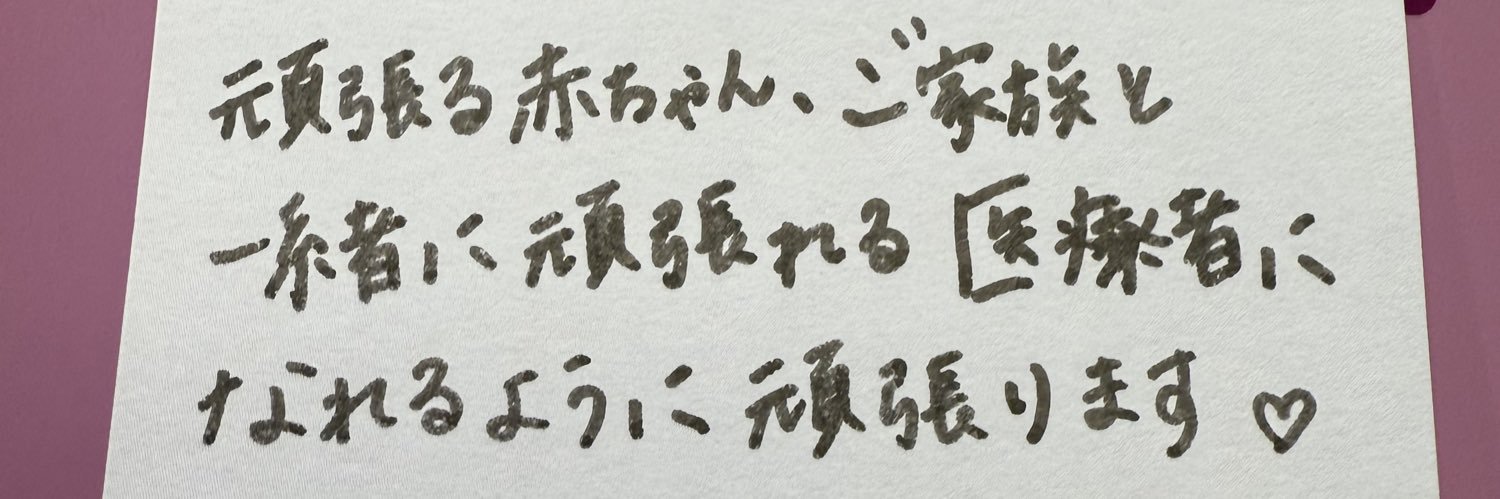 頑張る赤ちゃん、ご家族と
一緒に頑張れる医療者に
なれるように頑張ります♡